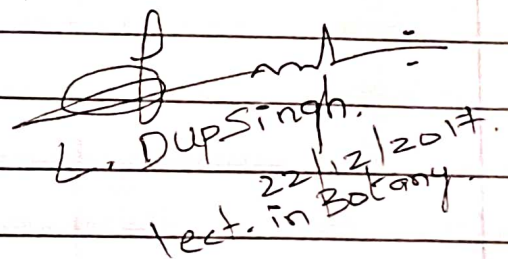 L. DupSingh.
22/12/2017.
lect. in Botany.